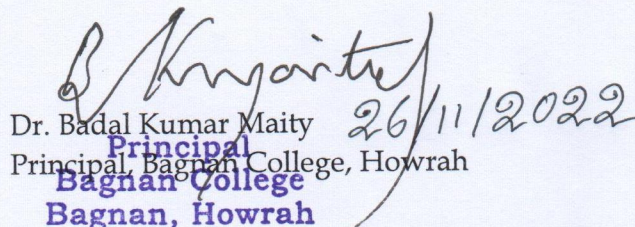 B Kmaity
26/11/2022
Dr. Badal Kumar Maity
Principal, Bagnan College, Howrah
Principal
Bagnan College
Bagnan, Howrah